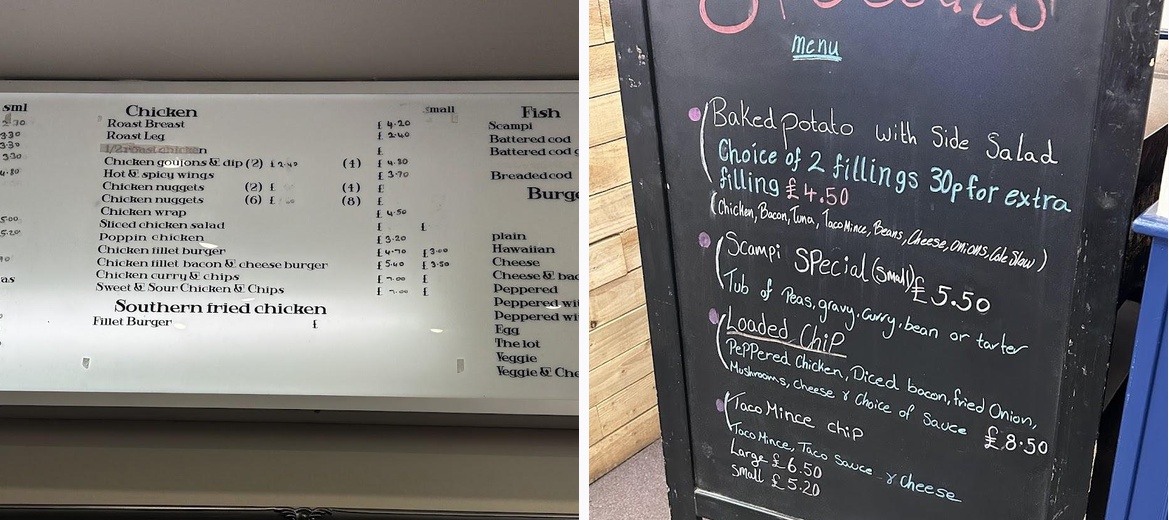 sml
Chicken
small
Roast Breast £ 4.20
Roast Leg £ 2.40
1/2 roast chicken £
Chicken goujons & dip (2) £ 2.40 (4) £ 4.80
Hot & spicy wings £ 3.70
Chicken nuggets (2) £ (4) £
Chicken nuggets (6) £ (8) £
Chicken wrap £ 4.50
Sliced chicken salad £ £
Poppin chicken £ 3.20
Chicken fillet burger £ 4.70 £ 3.00
Chicken fillet bacon & cheese burger £ 5.40 £ 3.50
Chicken curry & chips £ £
Sweet & Sour Chicken & Chips £ £
Southern fried chicken
Fillet Burger £
3.30
3.30
4.80
5.00
5.20
as
Fish
Scampi
Battered cod
Battered cod
Breaded cod
Burge
plain
Hawaiian
Cheese
Cheese & bac
Peppered
Peppered wi
Peppered
Egg
The lot
Veggie
Veggie & Che
Specials
menu
Baked potato with Side Salad
Choice of 2 fillings 30p for extra
filling £4.50
(Chicken, Bacon, Tuna, Taco Mince, Beans, Cheese, Onions, Cole Slaw)
Scampi Special (Small) £5.50
Tub of Peas, gravy, Curry, bean or tarter
Loaded Chip
Peppered Chicken, Diced bacon, fried Onion,
Mushrooms, cheese & Choice of Sauce £8.50
Taco Mince chip
Taco Mince, Taco Sauce & Cheese
Large £6.50
Small £5.20